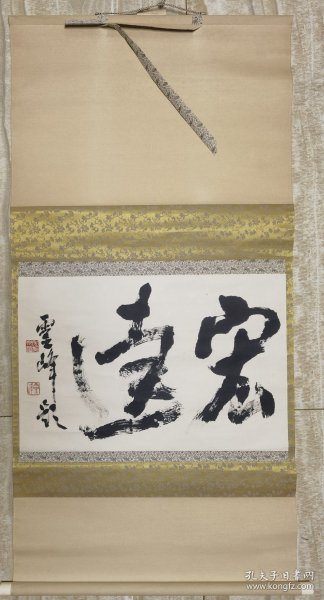 宏遠
雲峰題
孔夫子旧书网
www.kongfz.com